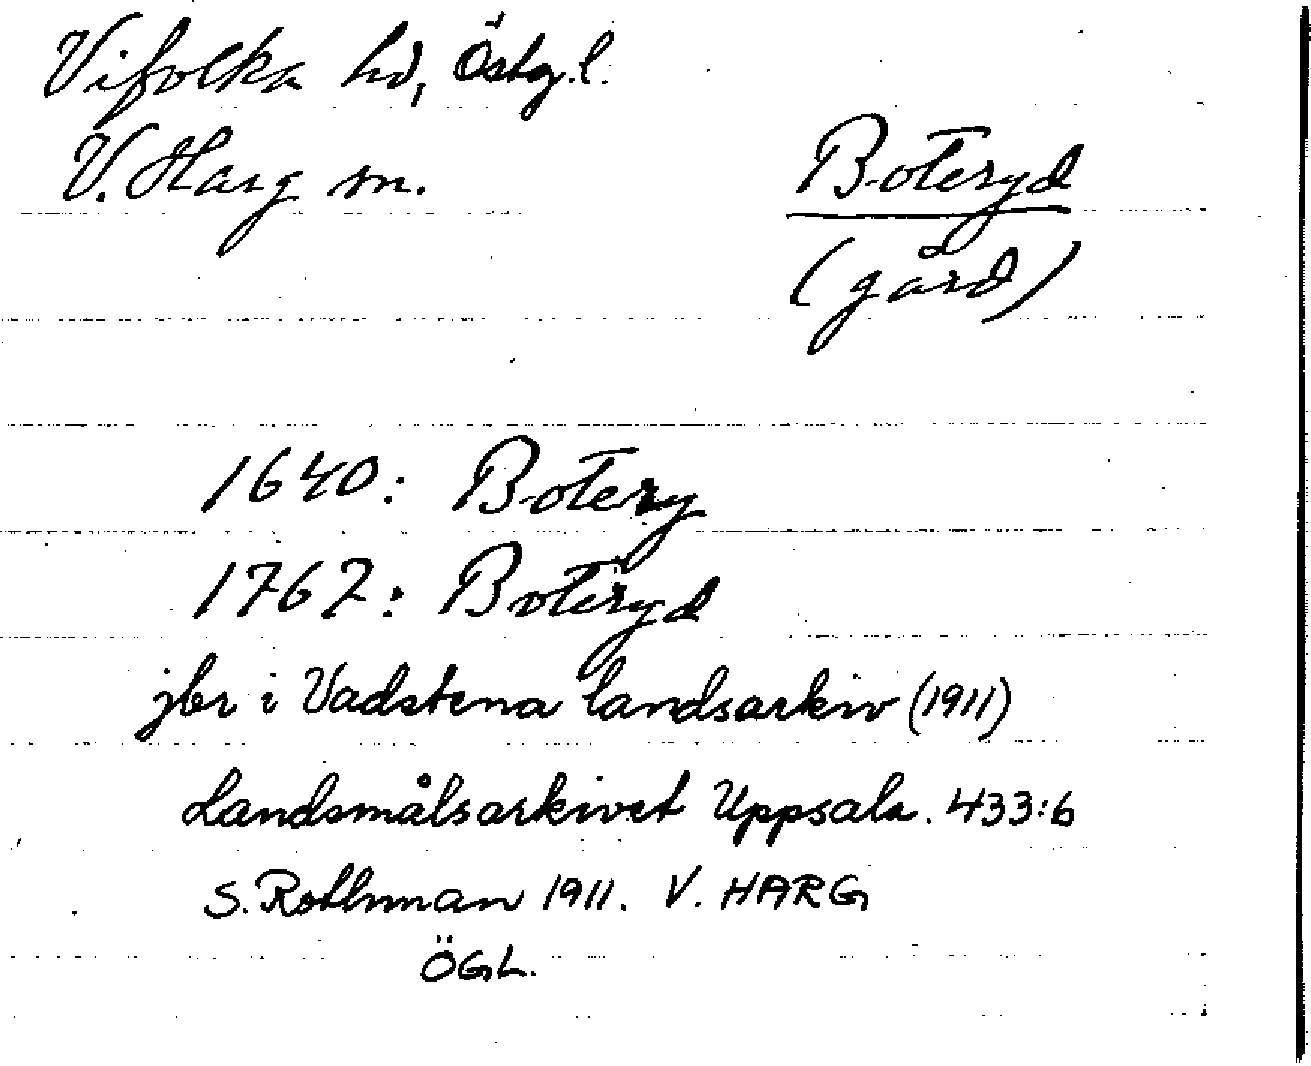 Vifolka hd, Östg.l.
V. Harg sn.
Boteryd
(gård)
1640: Botery
1762: Boteryd
jbr i Vadstena landsarkiv (1911)
Landsmålsarkivet Uppsala. 433:6
S. Rothman 1911. V. HARG
ÖGL.